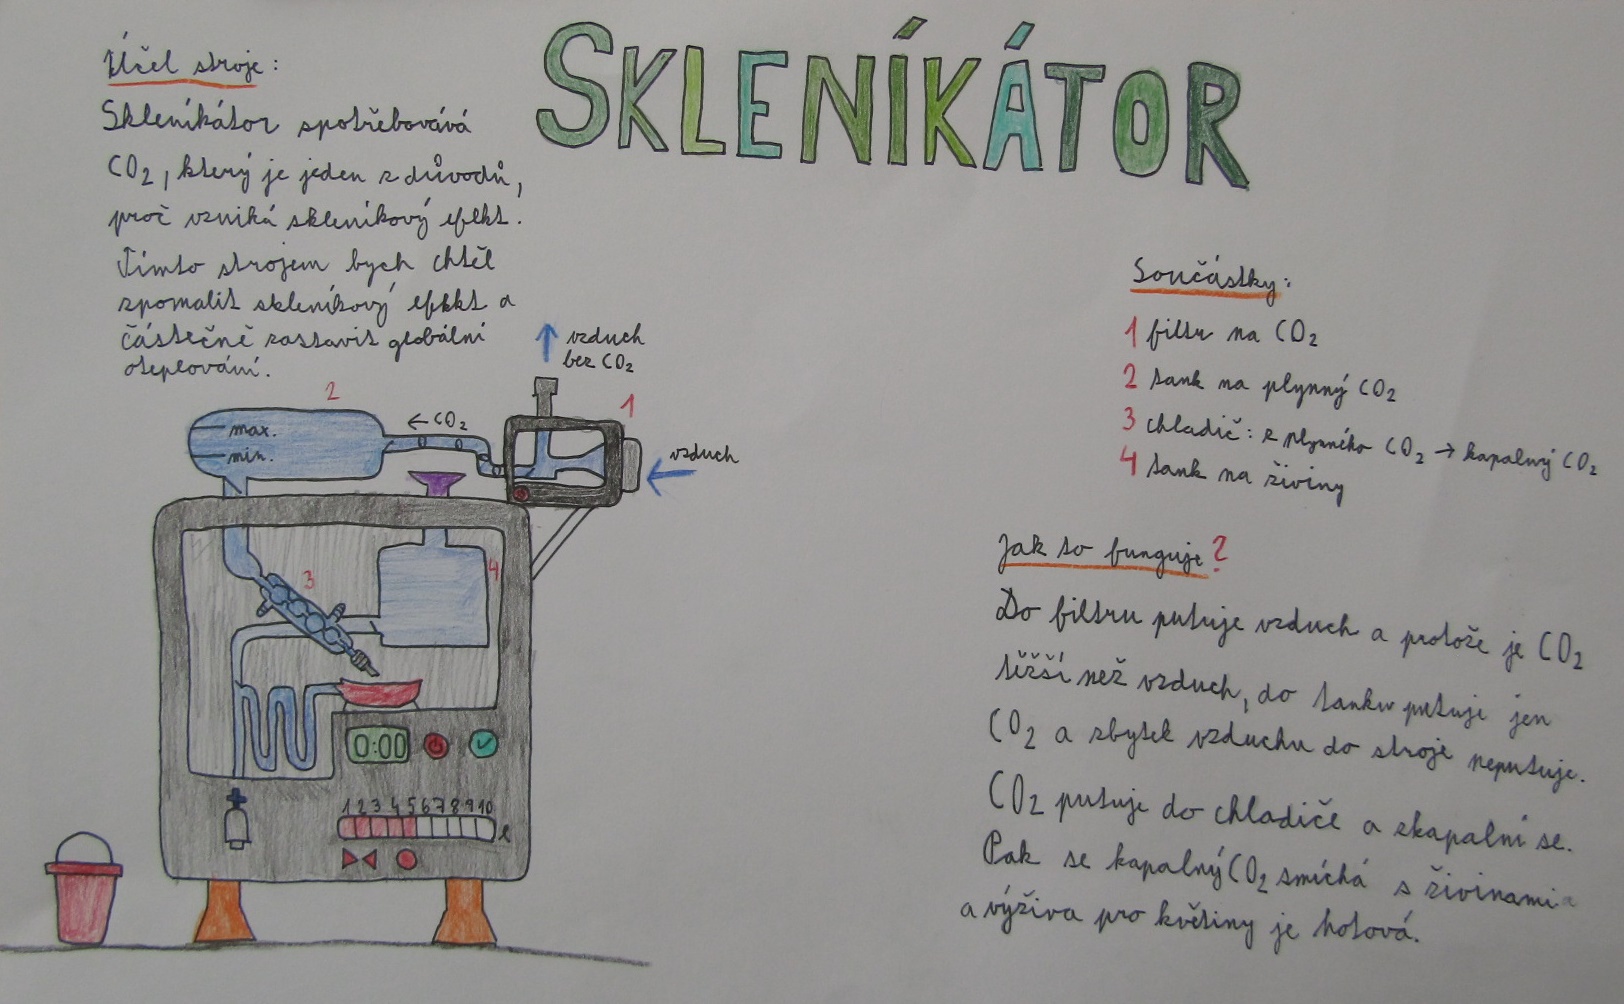 SKLENÍKÁTOR
Účel stroje:
Skleníkátor spotřebovává
CO2, který je jeden z důvodů,
proč vzniká skleníkový efekt.
Tímto strojem bych chtěl
zpomalit skleníkový efekt a
částečně zastavit globální
oteplování.
vzduch
bez CO2
2
1
← CO2
max.
min.
vzduch
3
4
0:00
1 2 3 4 5 6 7 8 9 10
l
Součástky:
1 filtr na CO2
2 tank na plynný CO2
3 chladič: z plynného CO2 → kapalný CO2
4 tank na živiny
Jak to funguje?
Do filtru putuje vzduch a protože je CO2
těžší než vzduch, do tanku putuje jen
CO2 a zbytek vzduchu do stroje neputuje.
CO2 putuje do chladiče a zkapalní se.
Pak se kapalný CO2 smíchá s živinami
a výživa pro květiny je hotová.